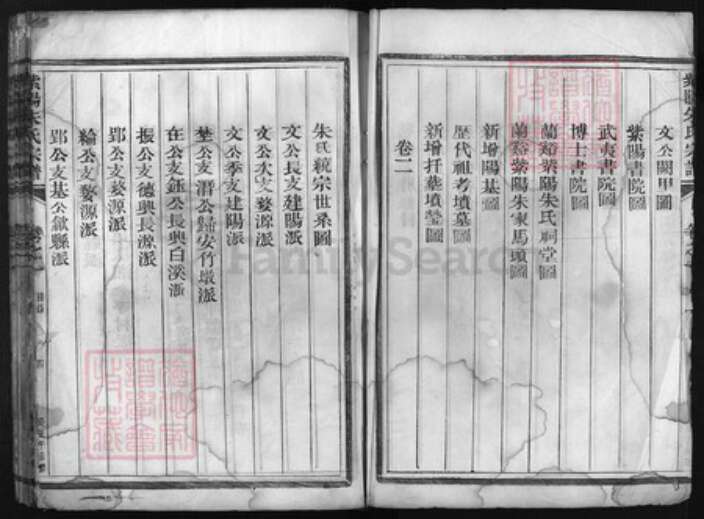 文公闕甲圖
紫陽書院圖
武夷書院圖
博士書院圖
蘭谿紫陽朱氏祠堂圖
蘭谿紫陽朱家馬頭圖
新增陽基圖
歷代祖考墳墓圖
新增扦塟墳瑩圖
卷二
朱氏統宗世系圖
文公長支建陽派
文公次支婺源派
文公季支建陽派
埜公支潛公歸安竹墩派
在公支鈺公長興白溪派
振公支德興長源派
郢公支婺源派
綸公支婺源派
郢公支基公歙縣派
紫陽朱氏宗譜
FamilySearch